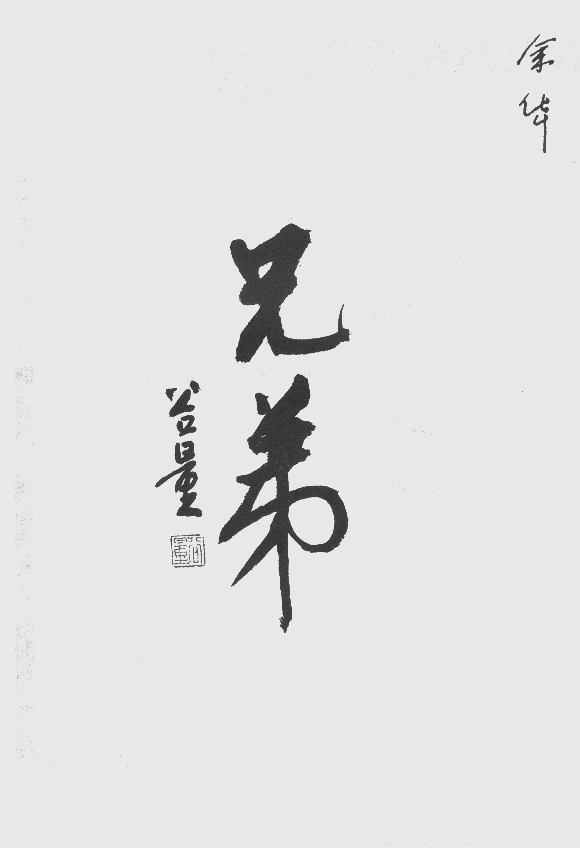 余华
兄弟
谷量